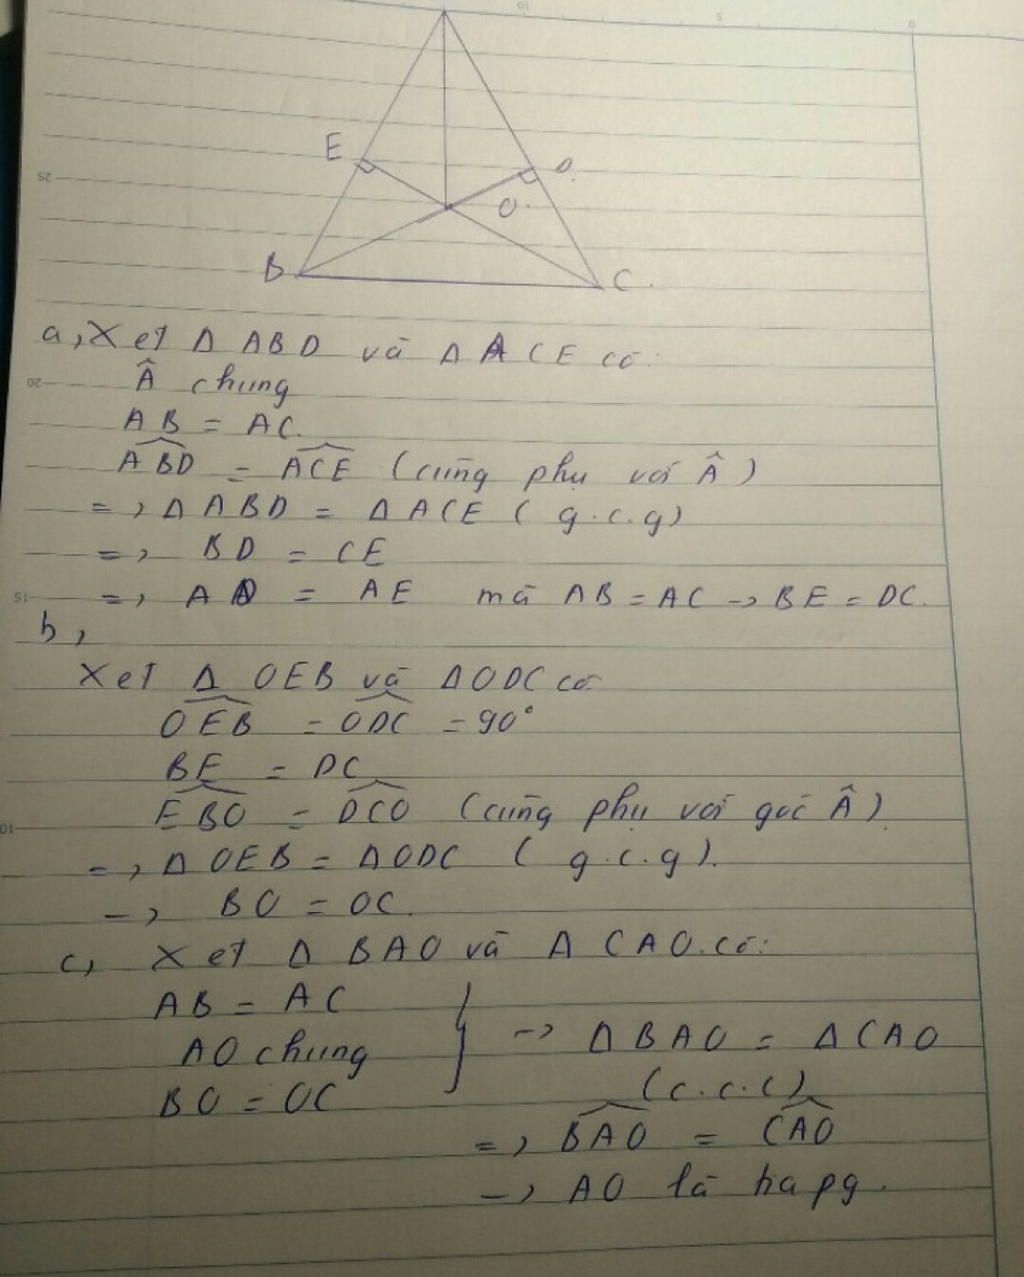 10
5
0
E
D.
25
O.
B
C.
a, Xét Δ ABD và Δ ACE có:
20
Â chung
AB = AC.
ABD = ACE (cùng phụ với Â)
=> Δ ABD = Δ ACE ( g.c.g)
=> BD = CE
15
=> AD = AE mà AB = AC -> BE = DC.
b,
Xét Δ OEB và Δ ODC có:
OEB = ODC = 90°
BE = DC
10
EBO = DCO (cùng phụ với góc Â)
=> Δ OEB = Δ ODC ( g.c.g).
-> BO = OC.
c, Xét Δ BAO và Δ CAO. có:
AB = AC
AO chung } -> Δ BAO = Δ CAO
BO = OC (c.c.c)
=> BAO = CAO
-> AO là tia pg.